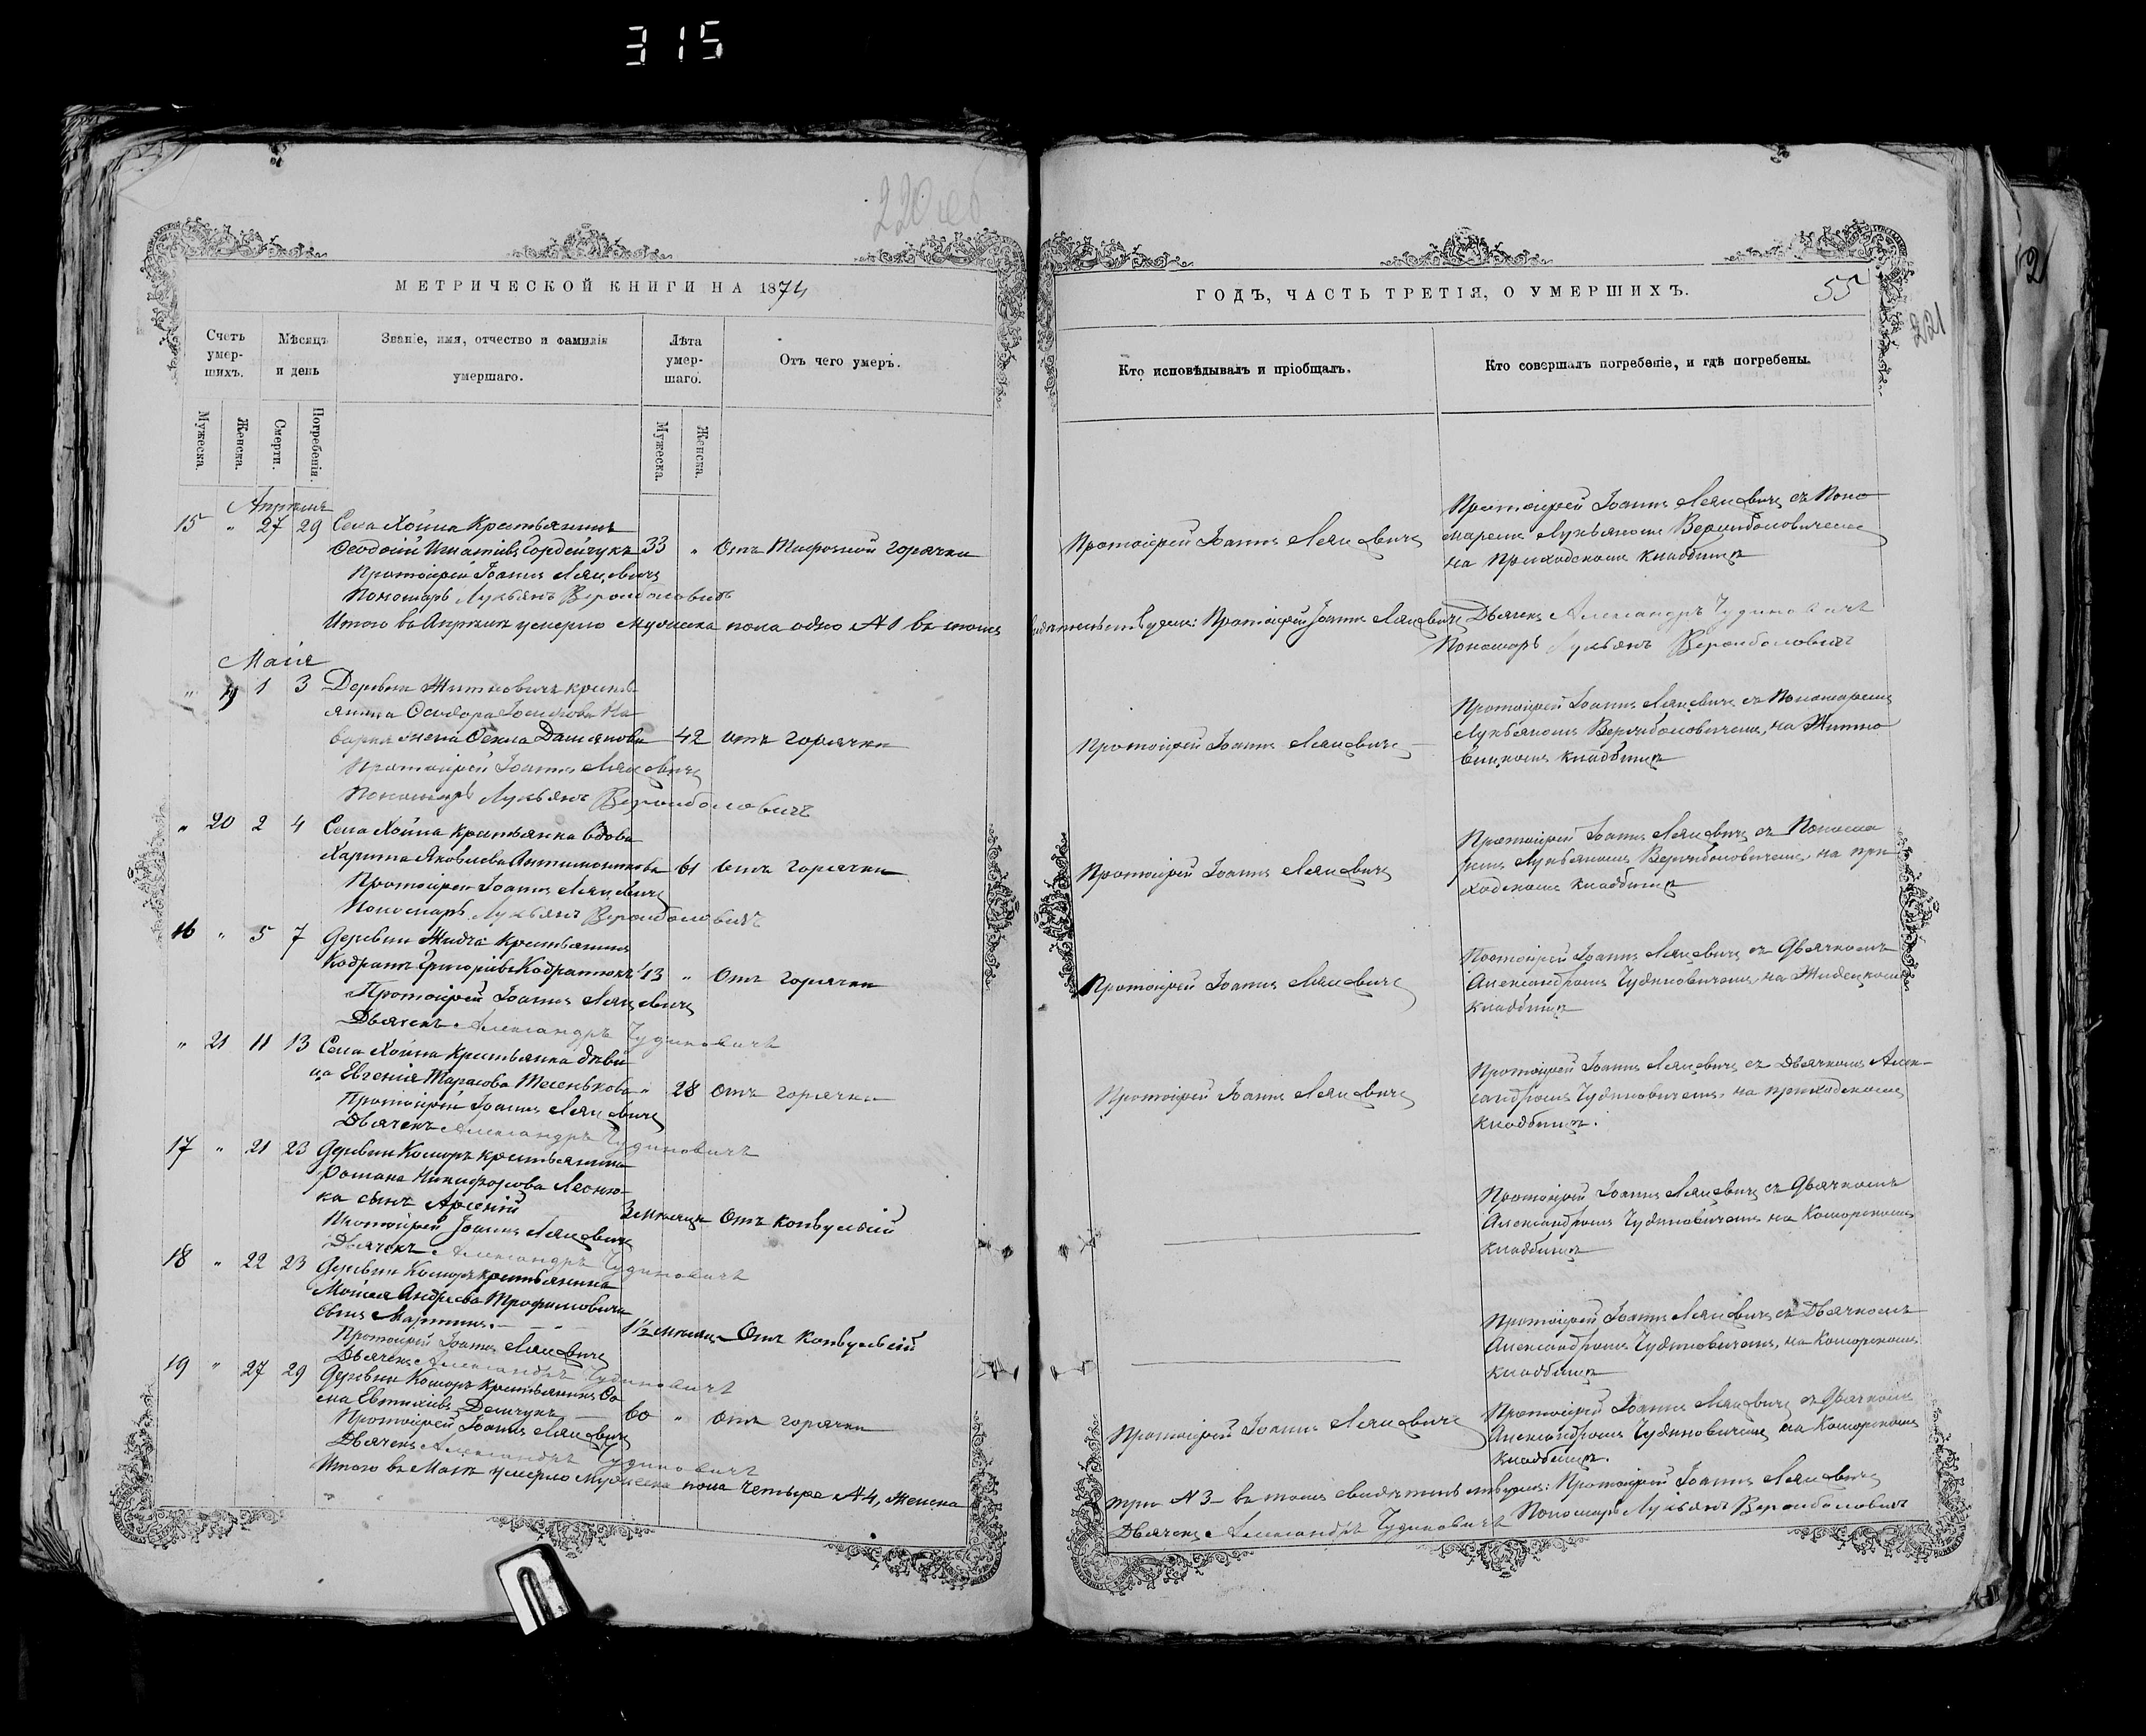 315
220 об
МЕТРИЧЕСКОЙ КНИГИ НА 1874
Счетъ умер-шихъ.
Мѣсяцъ и день
Званіе, имя, отчество и фамилія умершаго.
Лѣта умер-шаго.
Отъ чего умеръ.
Мужеска.
Женска.
Смерти.
Погребенія.
Мужеска.
Женска.
Апрѣль
15 " 27 29 Села Хойна крестьянинъ
Ѳеодосій Игнатіевъ Гордейчукъ 33 " Отъ тифозной горячки
Протоіерей Іоаннъ Ляцевичъ
Пономарь Лукьянъ Вероиболовичъ
Итого въ Апрѣлѣ умерло мужеска пола одно № 1 въ томъ
Маія
" 19 1 3 Деревни Житновичъ кресть
янина Ѳеодора
жена Ѳекла Даміанова 42 отъ горячки
Протоіерей Іоаннъ Ляцевичъ
Пономарь Лукьянъ Вероиболовичъ
" 20 2 4 Села Хойна крестьянка вдова
Харитина Яковлева 61 отъ горячки
Протоіерей Іоаннъ Ляцевичъ
Пономарь Лукьянъ Вероиболовичъ
16 " 5 7 Деревни Жидча крестьянинъ
Кодратъ Григоріевъ Кодратюкъ 13 " Отъ горячки
Протоіерей Іоаннъ Ляцевичъ
Дьячекъ Александръ Чудиновичъ
" 21 11 13 Села Хойна крестьянка дѣви
ца Евгенія Тарасова " 28 Отъ горячки
Протоіерей Іоаннъ Ляцевичъ
Дьячекъ Александръ Чудиновичъ
17 " 21 23 Деревни Коморъ крестьянина
Романа Никифорова Леоню-
ка сынъ Арсеній 3 мѣсяца Отъ конвульсій
Протоіерей Іоаннъ Ляцевичъ
Дьячекъ Александръ Чудиновичъ
18 " 22 23 Деревни Коморъ крестьянина
Мойсея Андреева Трофимовича
сынъ Мартинъ. 1½ мѣсяц Отъ конвульсій
Протоіерей Іоаннъ Ляцевичъ
Дьячекъ Александръ Чудиновичъ
19 " 27 29 Деревни Коморъ крестьянинъ Ѳо
ма Евтихіевъ Демчукъ 60 " Отъ горячки
Протоіерей Іоаннъ Ляцевичъ
Дьячекъ Александръ Чудиновичъ
Итого въ Маѣ умерло мужеска пола четыре № 4, женска
ГОДЪ, ЧАСТЬ ТРЕТІЯ, О УМЕРШИХЪ.
55
221
2
Кто исповѣдывалъ и пріобщалъ.
Кто совершалъ погребеніе, и гдѣ погребены.
Протоіерей Іоаннъ Ляцевичъ
Протоіерей Іоаннъ Ляцевичъ съ Поно
маремъ Лукьяномъ Вероиболовичемъ
на Приходскомъ кладбищѣ
свидѣтельствуемъ: Протоіерей Іоаннъ Ляцевичъ Дьячекъ Александръ Чудиновичъ
Пономарь Лукьянъ Вероиболовичъ
Протоіерей Іоаннъ Ляцевичъ
Протоіерей Іоаннъ Ляцевичъ съ Пономаремъ
Лукьяномъ Вероиболовичемъ, на Житно
вицкомъ кладбищѣ
Протоіерей Іоаннъ Ляцевичъ
Протоіерей Іоаннъ Ляцевичъ съ Понома
ремъ Лукьяномъ Вероиболовичемъ, на при
ходскомъ кладбищѣ
Протоіерей Іоаннъ Ляцевичъ
Протоіерей Іоаннъ Ляцевичъ съ Дьячкомъ
Александромъ Чудиновичемъ, на Жидецкомъ
кладбищѣ
Протоіерей Іоаннъ Ляцевичъ
Протоіерей Іоаннъ Ляцевичъ съ Дьячкомъ Алек-
сандромъ Чудиновичемъ, на приходскомъ
кладбищѣ.
Протоіерей Іоаннъ Ляцевичъ съ Дьячкомъ
Александромъ Чудиновичемъ на Коморскомъ
кладбищѣ
Протоіерей Іоаннъ Ляцевичъ съ Дьячкомъ
Александромъ Чудиновичемъ, на Коморскомъ
кладбищѣ
Протоіерей Іоаннъ Ляцевичъ
Протоіерей Іоаннъ Ляцевичъ съ Дьячкомъ
Александромъ Чудиновичемъ на Коморскомъ
кладбищѣ.
три № 3 – въ томъ свидѣтельствуемъ: Протоіерей Іоаннъ Ляцевичъ
Дьячекъ Александръ Чудиновичъ Пономарь Лукьянъ Вероиболовичъ